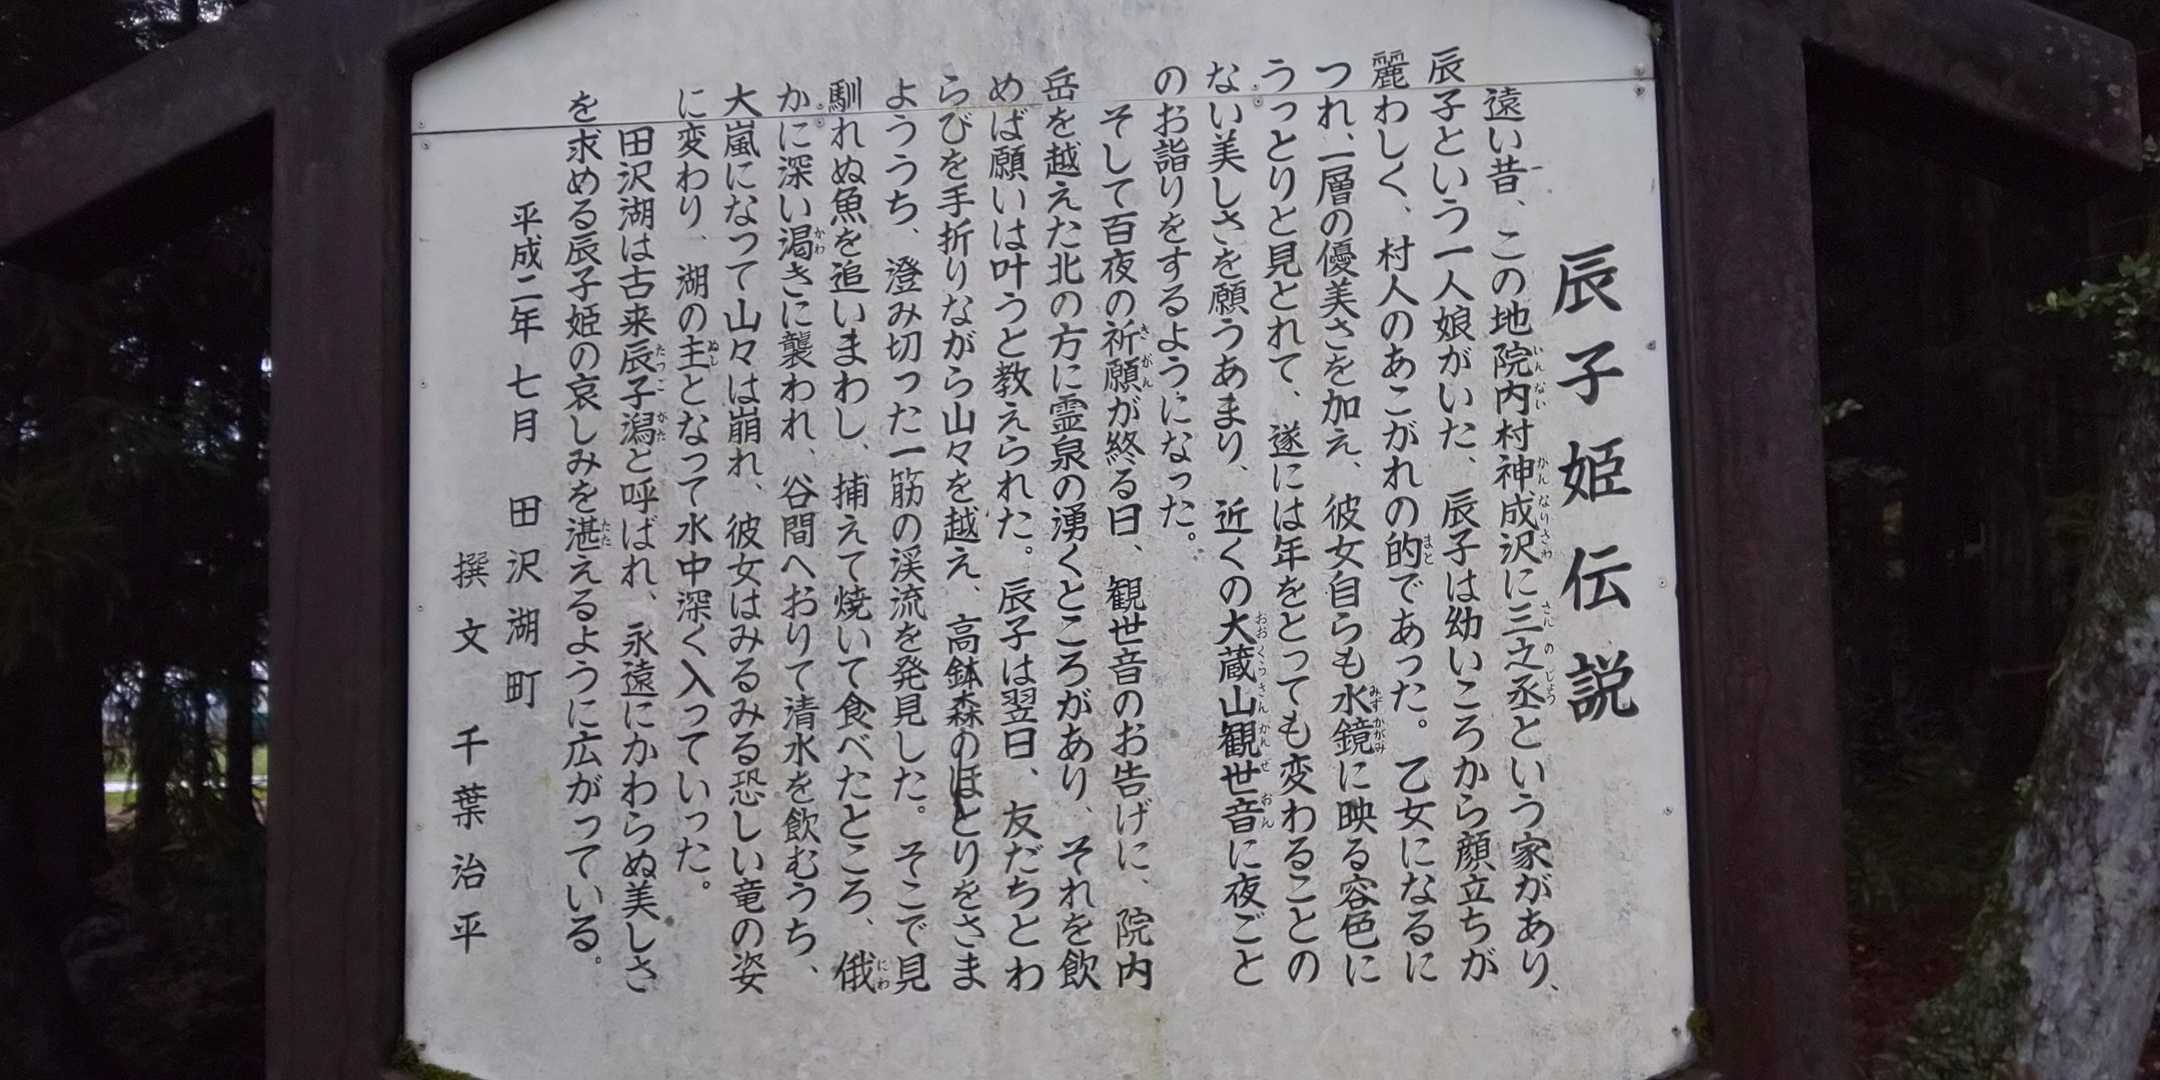 辰子姫伝説
遠い昔、この地院内村神成沢に三之丞という家があり、
辰子という一人娘がいた、辰子は幼いころから顔立ちが
麗わしく、村人のあこがれの的であった。乙女になるに
つれ、一層の優美さを加え、彼女自らも水鏡に映る容色に
うっとりと見とれて、遂には年をとっても変わることの
ない美しさを願うあまり、近くの大蔵山観世音に夜ごと
のお詣りをするようになった。
そして百夜の祈願が終る日、観世音のお告げに、院内
岳を越えた北の方に霊泉の湧くところがあり、それを飲
めば願いは叶うと教えられた。辰子は翌日、友だちとわ
らびを手折りながら山々を越え、高鉢森のほとりをさま
ようち、澄み切った一筋の渓流を発見した。そこで見
馴れぬ魚を追いまわし、捕えて焼いて食べたところ、俄
かに深い渇きに襲われ、谷間へおりて清水を飲むうち、
大嵐になって山々は崩れ、彼女はみるみる恐しい竜の姿
に変わり、湖の主となって水中深く入っていった。
田沢湖は古来辰子潟と呼ばれ、永遠にかわらぬ美しさ
を求める辰子姫の哀しみを湛えるように広がっている。
平成二年 七月 田沢湖町
撰文 千葉治平